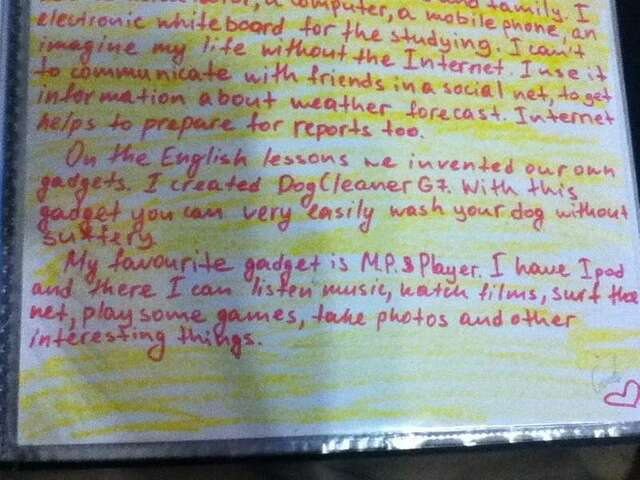 a computer, a mobile phone, an
electronic whiteboard for the studying. I can't
imagine my life without the Internet. I use it
to communicate with friends in a social net, to get
information about weather forecast. Internet
helps to prepare for reports too.
On the English lessons we invented our own
gadgets. I created Dog Cleaner G7. With this
gadget you can very easily wash your dog without
suffery
My favourite gadget is MP3 Player. I have Ipod
and there I can listen music, watch films, surf the
net, play some games, take photos and other
interesting things.